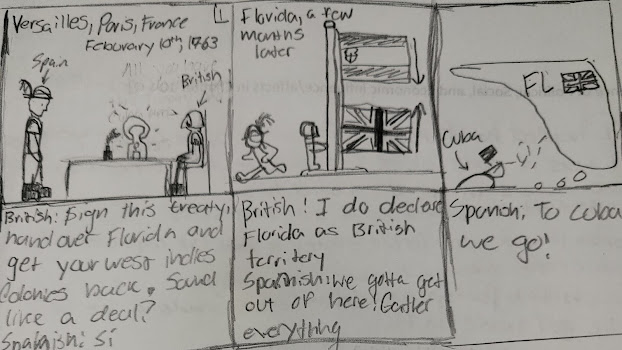 Versailles, Paris, France
Feburary 10th, 1763
1
Spain
British
Florida, a few
months
later
FL
Cuba
British: Sign this treaty,
hand over Florida and
get your west indies
Colonies back. Sound
like a deal?
Spanish: Sí
British: I do declare
Florida as British
territory
Spanish: we gotta get
out of here! Gather
everything
Spanish: To Cuba
we go!